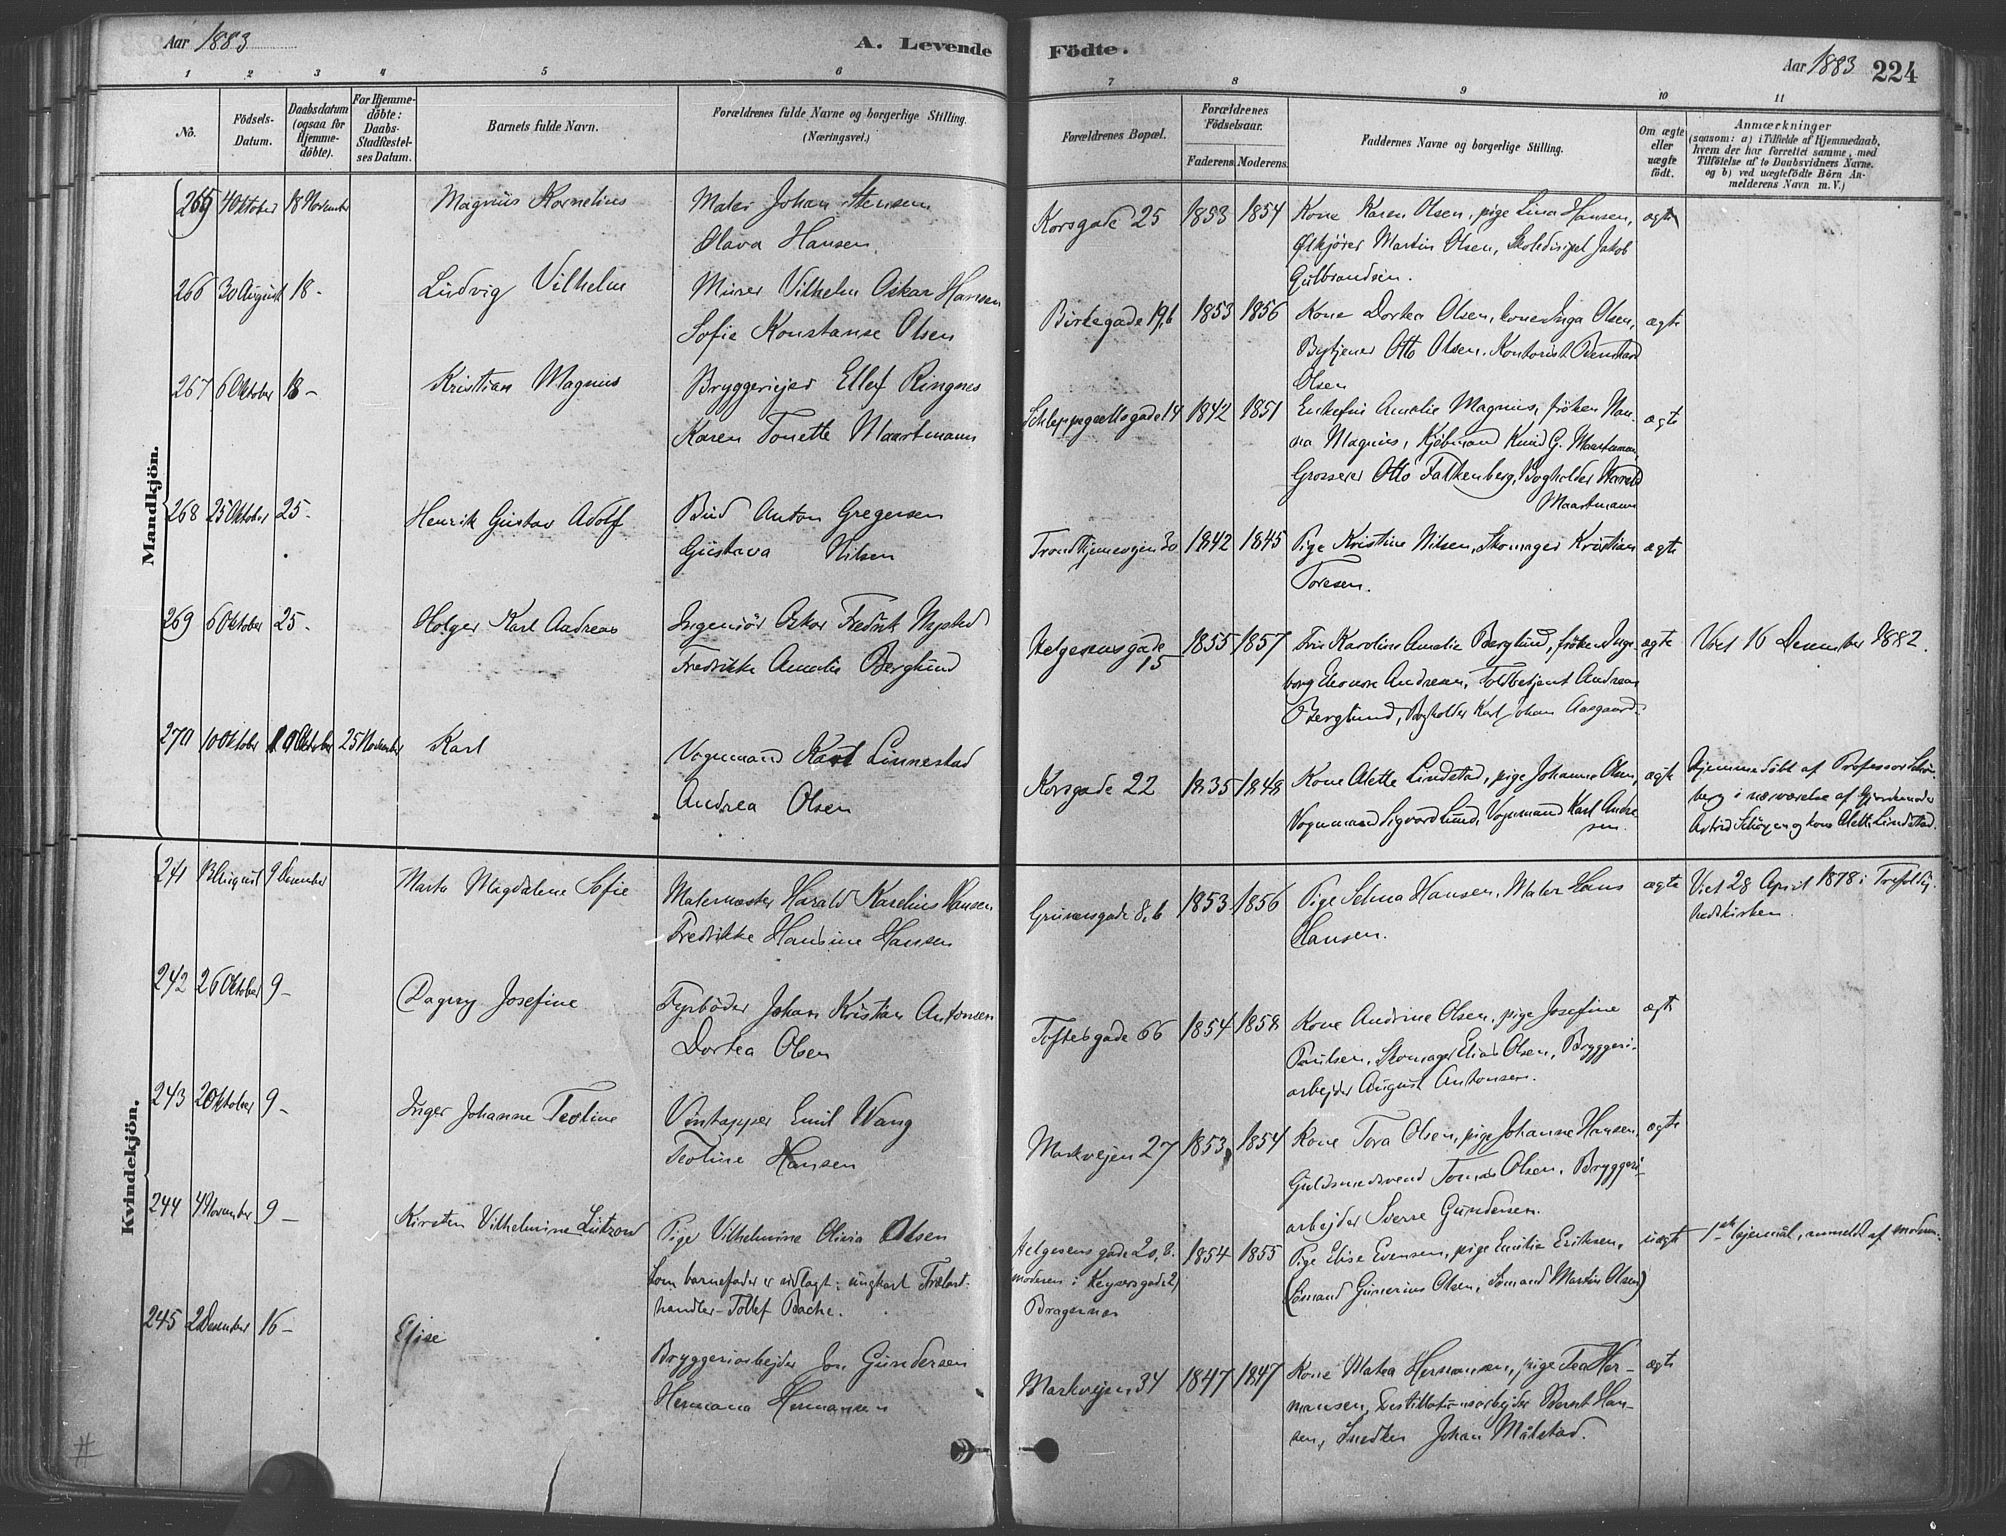 Aar 1883
A. Levende
Födte.
Aar 1883 224
1 2 3 4 5 6 7 8 9 10 11
No.
Födsels-
Datum.
Daabsdatum
(ogsaa for
Hjemme-
döbte).
For Hjemme-
döbte:
Daabs-
Stadfæstel-
ses Datum.
Barnets fulde Navn.
Forældrenes fulde Navne og borgerlige Stilling.
(Næringsvei.)
Forældrenes Bopæl.
Forældrenes
Födselsaar.
Faderens. Moderens.
Faddernes Navne og borgerlige Stilling.
Om ægte
eller
uægte
födt.
Anmærkninger
(saasom: a) i Tilfælde af Hjemmedaab,
hvem der har forrettet samme, med
Tilföielse af to Daabsvidners Navne.
og b) ved uægtefödte Börn An-
melderens Navn m. V.)
Mandkjön.
265 4 Oktober 18 November Magnus Kornelius
Maler Johan Stensen
Olava Hansen
Korsgade 25 1853 1854
Kone Karen Olsen, pige Lina Hansen, ægte
Ølkjører Martin Olsen, Skoledisipel Jakob
Gulbrandsen.
266 30 August 18 - Ludvig Vilhelm
Murer Vilhelm Oskar Hansen
Sofie Konstanse Olsen
Birkegade 19,b 1853 1856
Kone Dortea Olsen, kone Inga Olsen, ægte
Bytjener Otto Olsen, Kontorist
Olsen
267 6 Oktober 18 - Kristian Magnus
Bryggerieier Ellef Ringnes
Karen Tonette Maartmann
Schleppegrellsgade 14 1842 1851
Enkefru Amalie Magnus, frøken Nan- ægte
na Magnus, Kjøbmand Knud G. Maartmann,
Grosserer Otto Falkenberg, Bogholder Harald
Maartmann
268 25 Oktober 25 - Henrik Gustav Adolf
Bud Anton Gregersen
Gustava Nilsen
Trondhjemsvejen 30 1842 1845
Pige Kristine Nilsen, Skomager Kristian ægte
Toresen.
269 6 Oktober 25 - Holger Karl Andreas
Ingeniør Oskar Fredrik Nysted
Fredrikke Amalie Berglund
Helgesensgade
15 1855 1857
Fru Karoline Amalie Berglund, frøken Inge- ægte
borg Eleonore Andresen, Toldbetjent Andreas
Berglund, Bogholder Karl Johan Aasgaard.
Viet 16 December 1882.
270 10 Oktober 19 Oktober 25 November Karl
Vognmand Karl Linnestad
Andrea Olsen
Korsgade 22 1835 1848
Kone Alette Lindstad, pige Johanne Olsen, ægte
Vognmand Sigvard Lund, Vognmand Karl Andre-
sen.
Hjemmedøbt af Professor Schøn-
berg i nærværelse af Gjordemoder
Astrid og kone Alette Lindstad.
Kvindekjön.
241 August 9 Desember Marta Magdalene Sofie
Malermester Harald Karelius Hansen
Fredrikke Hansine Hansen
Grünersgade 8,b 1853 1856
Pige Selma Hansen, Maler Hans ægte
Hansen.
Viet 28 April 1878 i Trefoldig-
hedskirken.
242 26 Oktober 9 - Dagny Josefine
Fyrbøder Johan Kristian Antonsen
Dortea Olsen
Toftesgade 66 1854 1858
Kone Andrine Olsen, pige Josefine ægte
Paulsen, Skomager Elias Olsen, Bryggeri-
arbejder August Antonsen.
243 2 Oktober 9 - Inger Johanne Teoline
Vintapper Emil Wang
Teoline Hansen
Markvejen 27 1853 1854
Kone Tora Olsen, pige Johanne Hansen, ægte
Guldsmedsvend Tomas Olsen, Bryggeri-
arbejder Sverre Gundersen.
244 4 November 9 - Kirsten Vilhelmine Lützow
Pige Vilhelmine Olivia Olsen
som barnefader er udlagt: ungkarl Trælast-
handler Tollef Bache.
Helgesensgade 20, 8.
moderen: Keysersgade 2)
Bragernes
1854 1855
Pige Elise Evensen, pige Emilie Eriksen, uægte
(Sømand Gunerius Olsen, Sømand Martin Olsen)
1ste lejermål, anmeldt af moderen.
245 2 Desember 16 - Elise
Bryggeriarbejder Jon Gundersen
Hermana Hermansen
Markvejen 34 1847 1847
Kone Matea Hermansen, pige Tea Her- ægte
mansen, Destillationsarbejder Bernt Han-
sen, Snedker Johan Målstad.
#